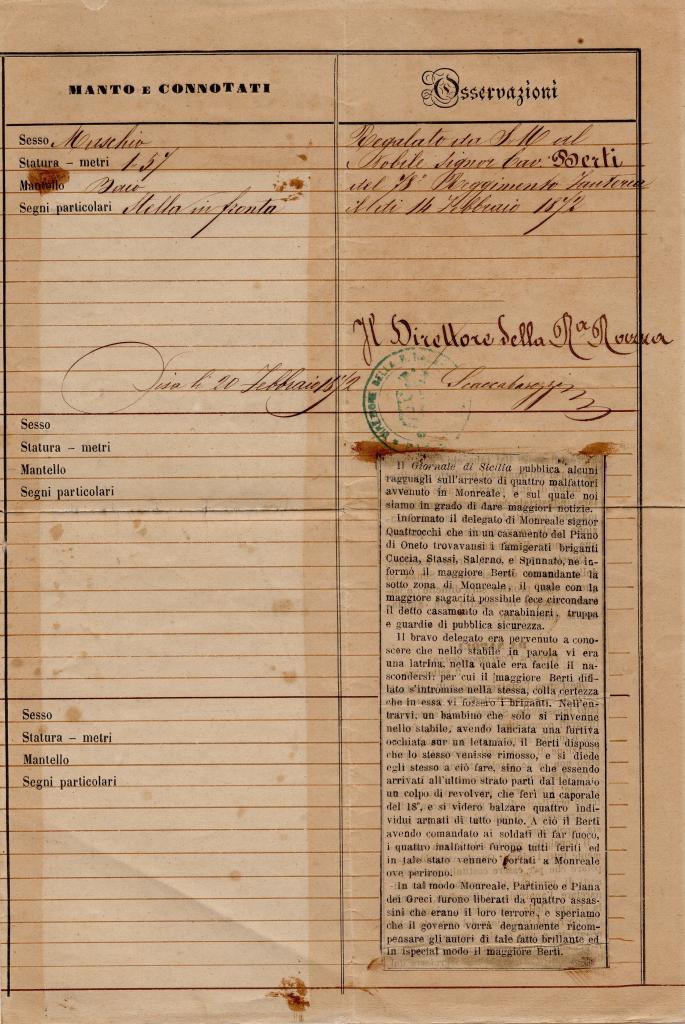 MANTO E CONNOTATI
Sesso Maschio
Statura – metri 1.57
Mantello Baio
Segni particolari Stella in fronta
Pisa li 20 Febbraio 1872
Sesso
Statura – metri
Mantello
Segni particolari
Sesso
Statura – metri
Mantello
Segni particolari
Osservazioni
Regalato da S. M. al
Nobile Signor Cav. Berti
del 78° Reggimento Fanteria
il dì 14 Febbraio 1872
Il Direttore della Ra Razza
DIREZIONE DELLA R.
Scaccabarozzi
Il Giornale di Sicilia pubblica alcuni
ragguagli sull'arresto di quattro malfattori
avvenuto in Monreale, e sul quale noi
siamo in grado di dare maggiori notizie.
Informato il delegato di Monreale signor
Quattrocchi che in un casamento del Piano
di Oneto trovavansi i famigerati briganti
Cuccia, Stassi, Salerno, e Spinnato, ne in-
formò il maggiore Berti comandante la
sotto zona di Monreale, il quale con la
maggiore sagacità possibile fece circondare
il detto casamento da carabinieri, truppa
e guardie di pubblica sicurezza.
Il bravo delegato era pervenuto a cono-
scere che nello stabile in parola vi era
una latrina, nella quale era facile il na-
scondersi; per cui il maggiore Berti difi-
lato s'intromise nella stessa, colla certezza
che in essa vi fossero i briganti. Nell'en-
trarvi, un bambino che solo si rinvenne
nello stabile, avendo lanciata una furtiva
occhiata sur un letamaio, il Berti dispose
che lo stesso venisse rimosso, e si diede
egli stesso a ciò fare, sino a che essendo
arrivati all'ultimo strato partì dal letamaio
un colpo di revolver, che ferì un caporale
del 18°, e si videro balzare quattro indi-
vidui armati di tutto punto. A ciò il Berti
avendo comandato ai soldati di far fuoco,
i quattro malfattori furono tutti feriti ed
in tale stato vennero portati a Monreale
ove perirono.
In tal modo Monreale, Partinico e Piana
dei Greci furono liberati da quattro assas-
sini che erano il loro terrore, e speriamo
che il governo vorrà degnamente ricom-
pensare gli autori di tale fatto brillante ed
in ispecial modo il maggiore Berti.